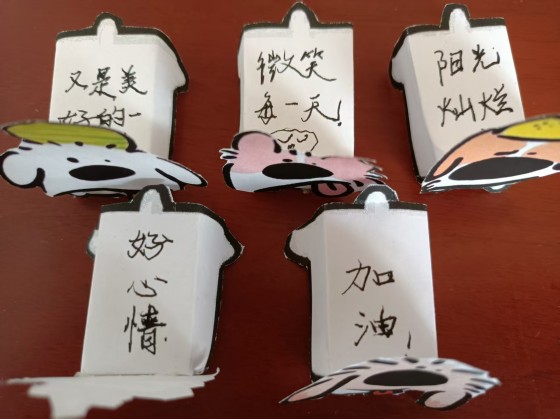 又是美
好的一
微笑
每一天!
阳光
灿烂
好
心
情.
加
油,